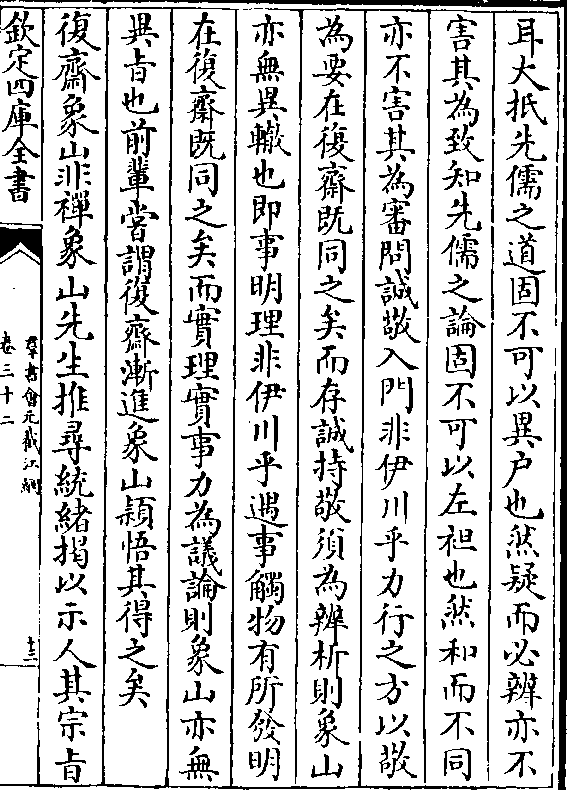 耳大抵先儒之道固不可以異户也然疑而必辨亦不
害其為致知先儒之論固不可以左袒也然和而不同
亦不害其為審問誠敬入門非伊川乎力行之方以敬
為要在復齋既同之矣而存誠持敬須為辨析則象山
亦無異轍也即事明理非伊川乎遇事觸物有所發明
在復齋既同之矣而實理實事力為議論則象山亦無
異㫖也前輩嘗謂復齋漸進象山穎悟其得之矣
復齋象山非禪象山先生推尋統緒掲以示人其宗㫖
欽定四庫全書
羣書會元截江網
卷三十二
十三